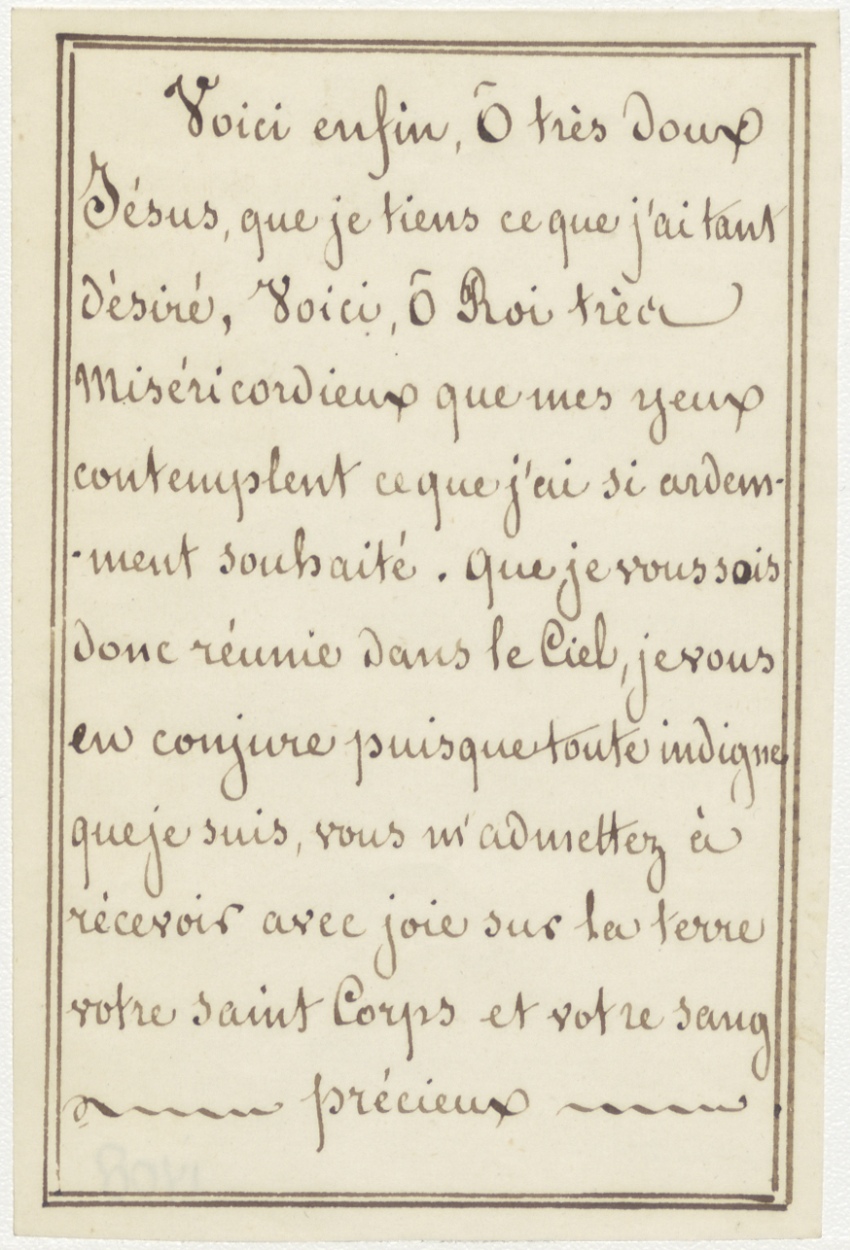 Voici enfin, Ō très doux
Jésus, que je tiens ce que j'ai tant
désiré, Voici, ō Roi très
Miséricordieux que mes yeux
contemplent ce que j'ai si ardem-
-ment souhaité. Que je vous sois
donc réunie dans le Ciel, je vous
en conjure puisque toute indigne
que je suis, vous m'admettez à
récevoir avec joie sur la terre
votre saint Corps et votre sang
précieux